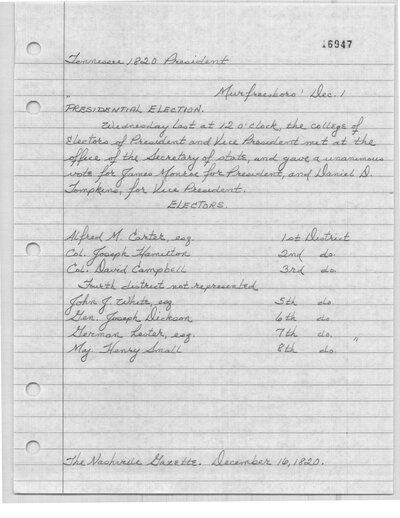 16947
Tennessee 1820 President
" Murfreesboro' Dec. 1
PRESIDENTIAL ELECTION.
Wednesday last at 12 o'clock, the college of
Electors of President and Vice President met at the
office of the Secretary of state, and gave a unanimous
vote for James Monroe for President, and Daniel D.
Tompkins, for Vice President.
ELECTORS.
Alfred M. Carter, esq. 1st District
Col. Joseph Hamilton 2nd do.
Col. David Campbell 3rd do.
Fourth district not represented
John J. White, esq 5th do.
Gen. Joseph Dickson 6th do.
German Lester, esq. 7th do. "
Maj. Henry Small 8th do.
The Nashville Gazette. December 16, 1820.